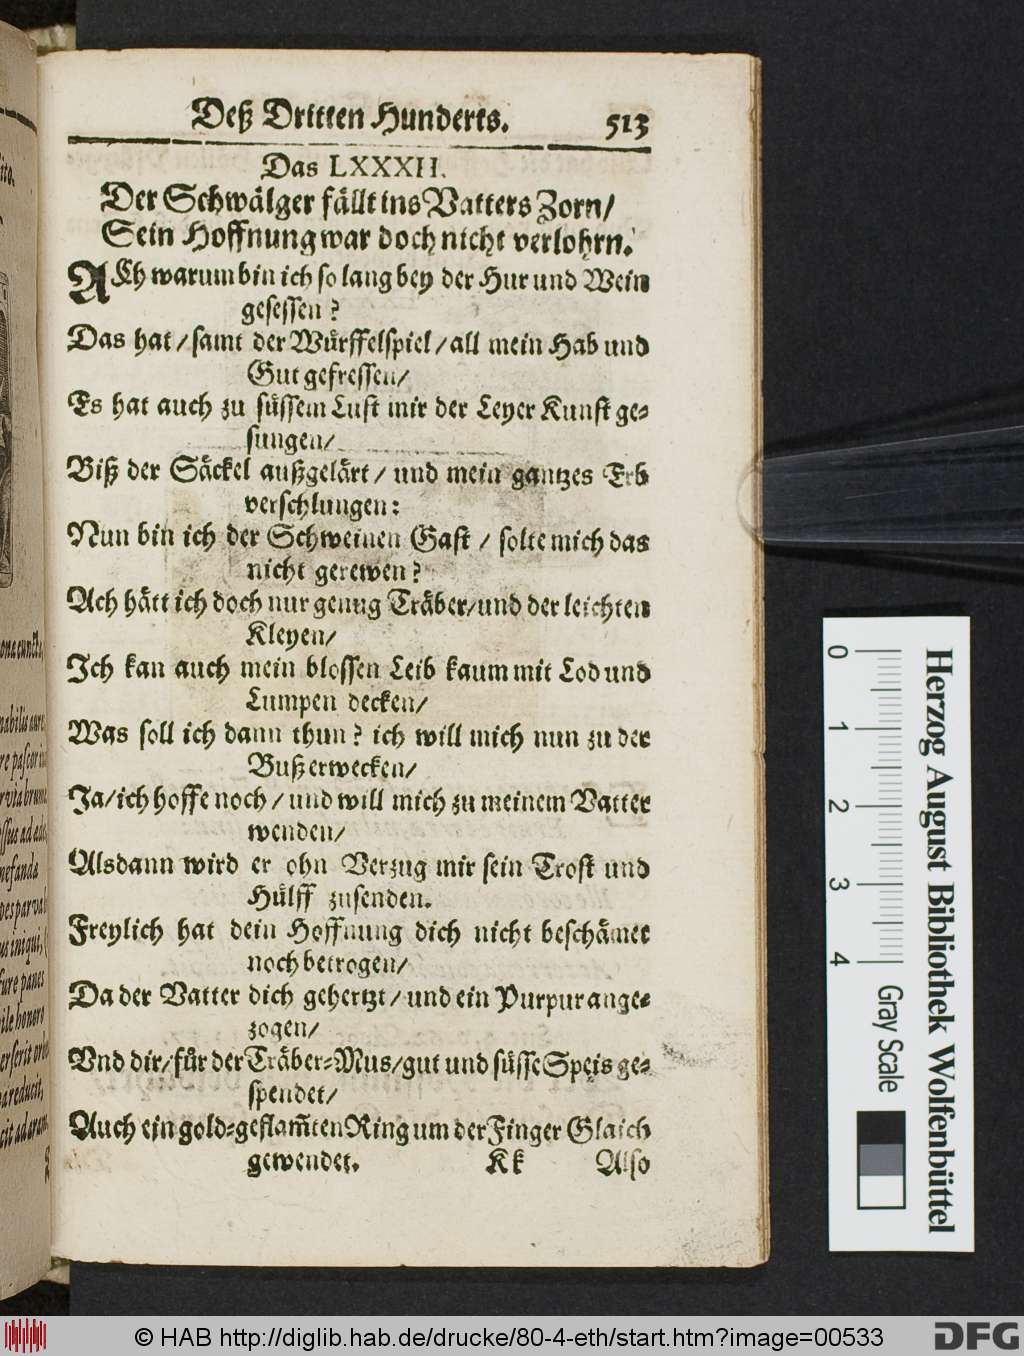 Deß Dritten Hunderts. 513
Das LXXXII.
Der Schwälger fällt ins Vatters Zorn/
Sein Hoffnung war doch nicht verlohrn.
ACh warum bin ich so lang bey der Hur und Wein
gesessen?
Das hat/ samt der Würffelspiel/ all mein Hab und
Gut gefressen/
Es hat auch zu süssem Lust mir der Leyer Kunst ge-
sungen/
Biß der Säckel außgelärt/ und mein gantzes Erb
verschlungen:
Nun bin ich der Schweinen Gast/ solte mich das
nicht gerewen?
Ach hätt ich doch nur genug Träber/ und der leichten
Kleyen/
Ich kan auch mein blossen Leib kaum mit Lod und
Lumpen decken/
Was soll ich dann thun? ich will mich nun zu der
Buß erwecken/
Ja/ ich hoffe noch/ und will mich zu meinem Vatter
wenden/
Alsdann wird er ohn Verzug mir sein Trost und
Hülff zusenden.
Freylich hat dein Hoffnung dich nicht beschämet
noch betrogen/
Da der Vatter dich gehertzt/ und ein Purpur ange-
zogen/
Vnd dir/ für der Träber-Mus/ gut und süsse Speis ge-
spendet/
Auch ein gold-geflam̃ten Ring um der Finger Glaich
gewendet. Kk Also
0 1 2 3 4
Gray Scale
Herzog August Bibliothek Wolfenbüttel
© HAB http://diglib.hab.de/drucke/80-4-eth/start.htm?image=00533
DFG